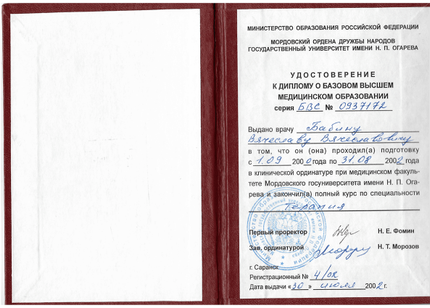 МИНИСТЕРСТВО ОБРАЗОВАНИЯ РОССИЙСКОЙ ФЕДЕРАЦИИ
МОРДОВСКИЙ ОРДЕНА ДРУЖБЫ НАРОДОВ
ГОСУДАРСТВЕННЫЙ УНИВЕРСИТЕТ ИМЕНИ Н. П. ОГАРЕВА
УДОСТОВЕРЕНИЕ
К ДИПЛОМУ О БАЗОВОМ ВЫСШЕМ
МЕДИЦИНСКОМ ОБРАЗОВАНИИ
серия БВС № 0937172
Выдано врачу Бабину
Вячеславу Вячеславовичу
в том, что он (она) проходил(а) подготовку
с 1.09 2000 года по 31.08 2002 года
в клинической ординатуре при медицинском факуль-
тете Мордовского госуниверситета имени Н. П. Ога-
рева и закончил(а) полный курс по специальности
Терапия
Первый проректор Н. Е. Фомин
Зав. ординатурой Н. Т. Морозов
г. Саранск
Регистрационный № 4/ок
Дата выдачи «30» июля 2002 г.